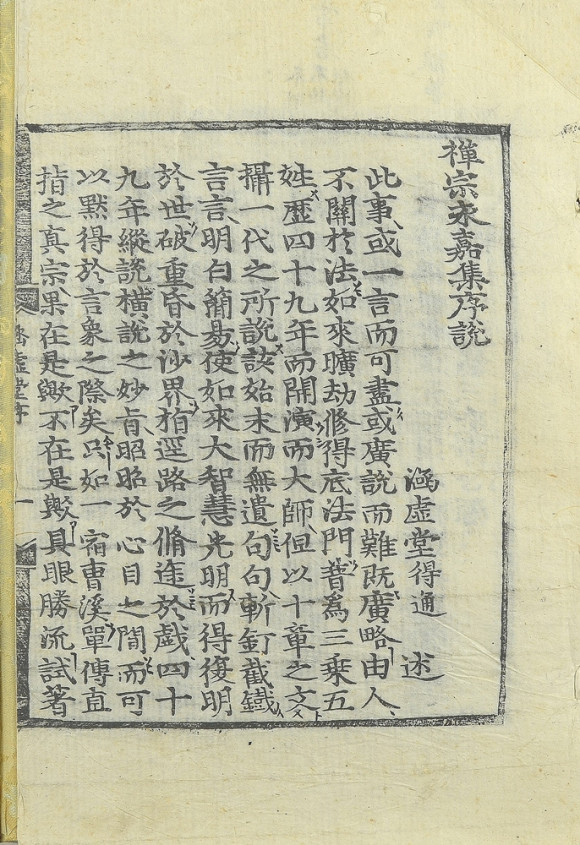 禪宗永嘉集序說
涵虛堂得通 述
此事或一言而可盡或廣說而難旣廣略由人
不關於法如來曠劫修得底法門普爲三乘五
姓歷四十九年而開演而大師但以十章之文
攝一代之所說該始末而無遺句句斬釘截鐵
言言明白簡易使如來大智慧光明而得復明
於世破重昏於沙界指逕路之脩進於戱四十
九年縱說橫說之妙旨昭昭於心目之間而可
以默得於言象之際矣只如一宿曹溪單傳直
指之真宗果在是歟不在是歟具眼勝流試著
涵虛堂序
一